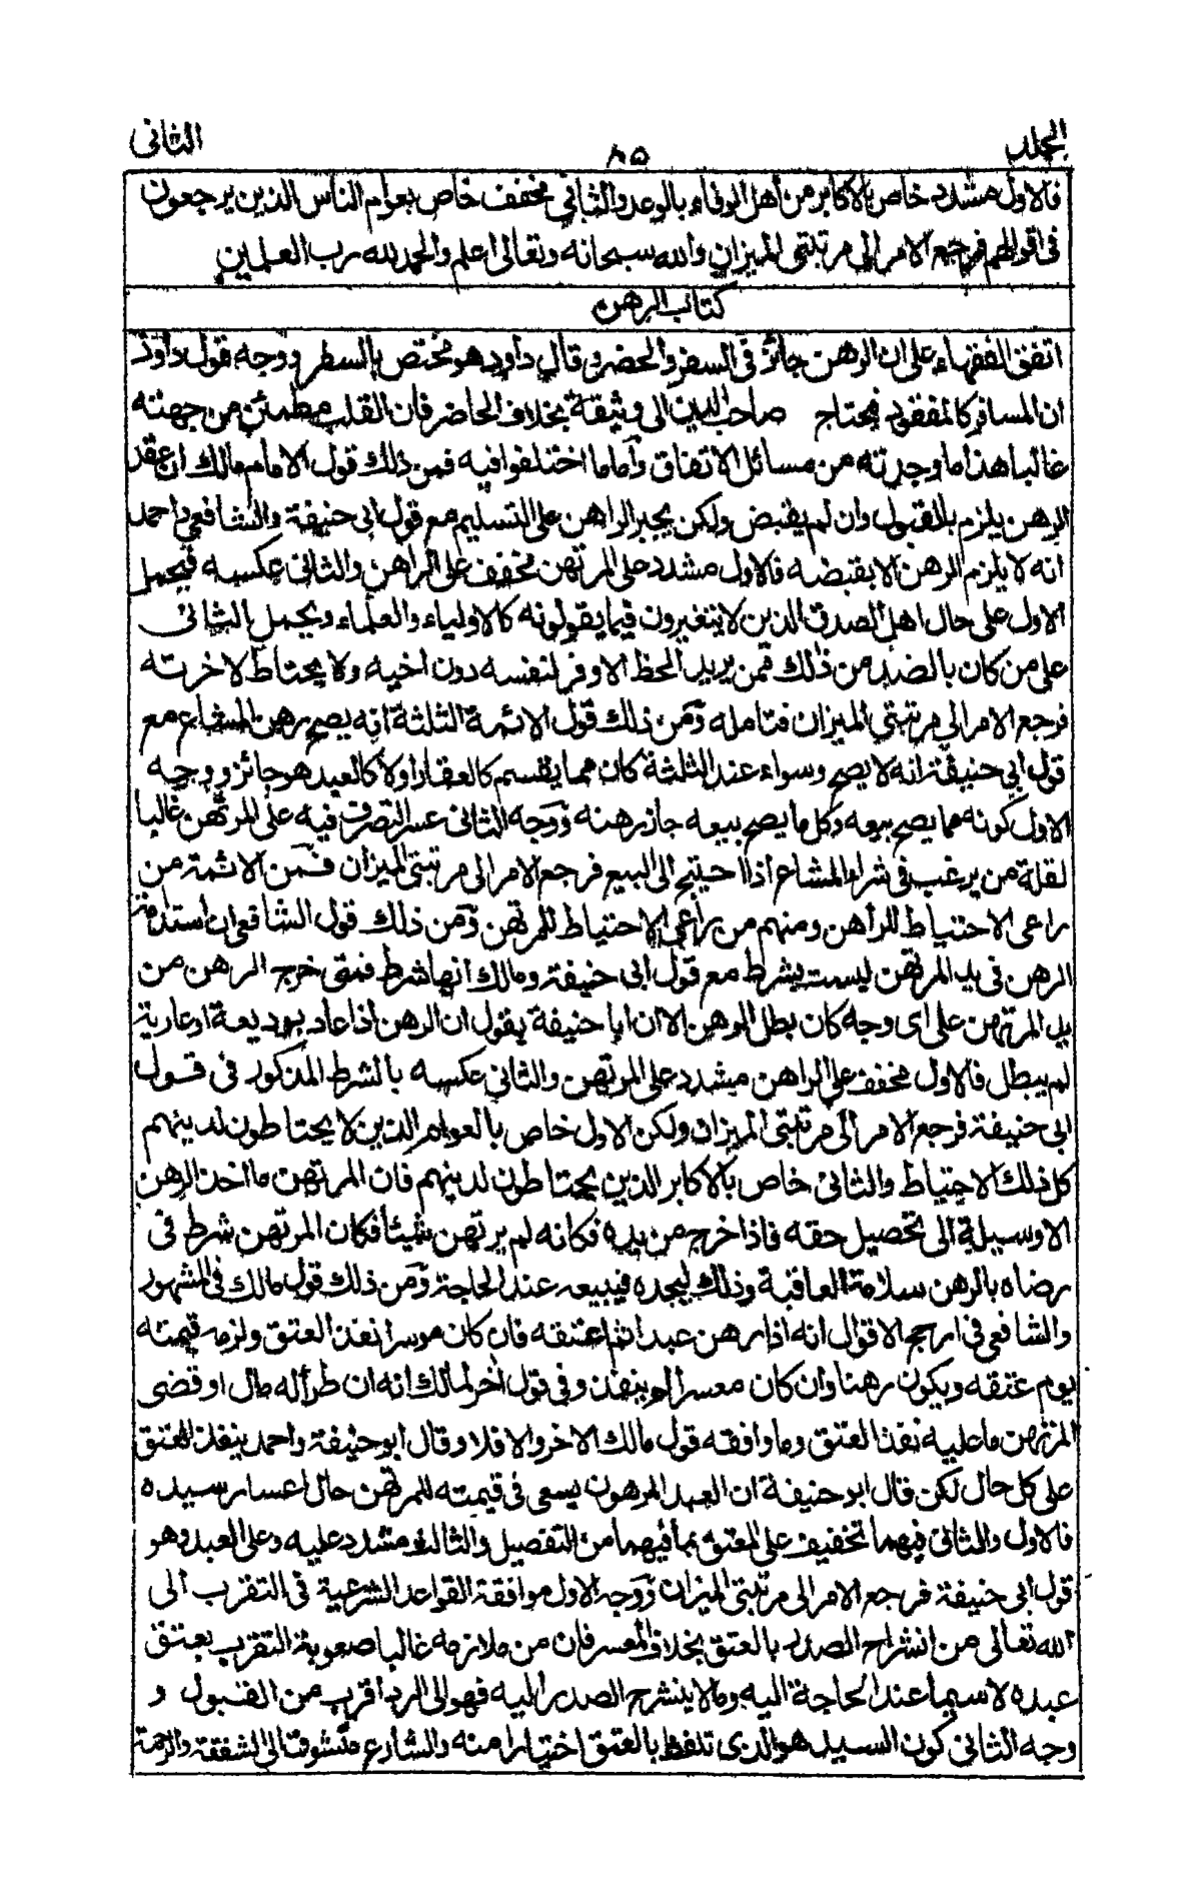 الجلد
٨٥
الثانى
فالاول مشدد خاص بالاكابر من أهل الوفاء بالوعد والثانى مخفف خاص بعوام الناس الذين يرجعون
فى اقوالهم فرجع الامر الى مرتبتى الميزان والله سبحانه وتعالى اعلم والحمد لله رب العلمين
كتاب الرهن
اتفق الفقهاء على ان الرهن جائز فى السفر والحضر وقال داود هو مختص بالسفر ووجه قول داود
ان المسافر كالمفقود فيحتاج صاحب الدين الى وثيقة بخلاف الحاضر فان القلب مطمئن من جهته
غالبا هذا ما وجدته من مسائل الاتفاق وأما ما اختلفوا فيه فمن ذلك قول الامام مالك ان عقد
الرهن يلزم بالقبول وان لم يقبض ولكن يجبر الراهن على التسليم مع قول ابى حنيفة والشافعى واحمد
انه لا يلزم الرهن الا بقبضه فالاول مشدد على المرتهن مخفف على الراهن والثانى عكسه فيحمل
الاول على حال اهل الصدق الذين لا يتغيرون فيما يقولونه كالاولياء والعلماء ويحمل الثانى
على من كان بالضد من ذلك فمن يريد الحظ الاوفر لنفسه دون اخيه ولا يحتاط لاخرته
فرجع الامر الى مرتبتى الميزان فتامله ومن ذلك قول الائمة الثلثة انه يصح رهن المشاع مع
قول ابى حنيفة انه لا يصح وسواء عند الثلثة كان مما يقسم كالعقار اولا كالعبد هو جائز ووجه
الاول كونه مما يصح بيعه وكل ما يصح بيعه جاز رهنه ووجه الثانى عسر التصرف فيه على المرتهن غالبا
لقلة من يرغب فى شراء المشاع أذا احتيج الى البيع فرجع الامر الى مرتبتى الميزان فمن الائمة من
راعى الاحتياط للرأهن ومنهم من راعى الاحتياط للمرتهن ومن ذلك قول الشافعى ان استدامة
الرهن فى يد المرتهن ليست بشرط مع قول ابى حنيفة ومالك انها شرط فمتى خرج الرهن من
يد المرتهن على اى وجه كان بطل الرهن الا ان ابا حنيفة يقول ان الرهن أذا عاد بوديعة اوعارية
لم يبطل فالاول مخفف على الراهن مشدد على المرتهن والثانى عكسه بالشرط المذكور فى قول
ابى حنيفة فرجع الامر الى مرتبتى الميزان ولكن الاول خاص بالعوام الذين لا يحتاطون لدينهم
كل ذلك الاحتياط والثانى خاص بالاكابر الذين يحتاطون لدينهم فان المرتهن ما اخذ الرهن
الا وسيلة الى تحصيل حقه فاذا خرج من يده فكانه لم يرتهن شيئا فكان المرتهن شرط فى
رضاه بالرهن سلامة العاقبة وذلك ليجده فيبيعه عند الحاجة ومن ذلك قول مالك فى المشهور
والشافعى فى ارجح الاقوال انه اذا رهن عبدا ثم اعتقه فان كان موسرا نفذ العتق ولزمه قيمته
يوم عتقه ويكون رهنا وان كان معسرا لم ينفذ وفى قول أخر لمالك انه ان طرأ له مال او قضى
المرتهن ما عليه نفذ العتق وما وافقه قول مالك الاخر والا فلا وقال ابو حنيفة واحمد ينفذ العتق
على كل حال لكن قال ابو حنيفة ان العبد المرهون يسعى فى قيمته للمرتهن حال اعسار سيده
فالاول والثانى فيهما تخفيف على المعتق بما فيهما من التفصيل والثالث مشدد عليه وعلى العبد وهو
قول ابى حنيفة فرجع الامر الى مرتبتى الميزان ووجه الاول موافقة القواعد الشرعية فى التقرب الى
الله تعالى من انشراح الصدر بالعتق بخلاف المعسر فان من ملازمه غالبا صعوبة التقرب بعتق
عبده لاسيما عند الحاجة اليه وما لا ينشرح الصدر اليه فهو الى الرد اقرب من القبول و
وجه الثانى كون السيد هو الذى تلفظ بالعتق اختيارا منه والشارع متشوف الى الشفقة والرحمة